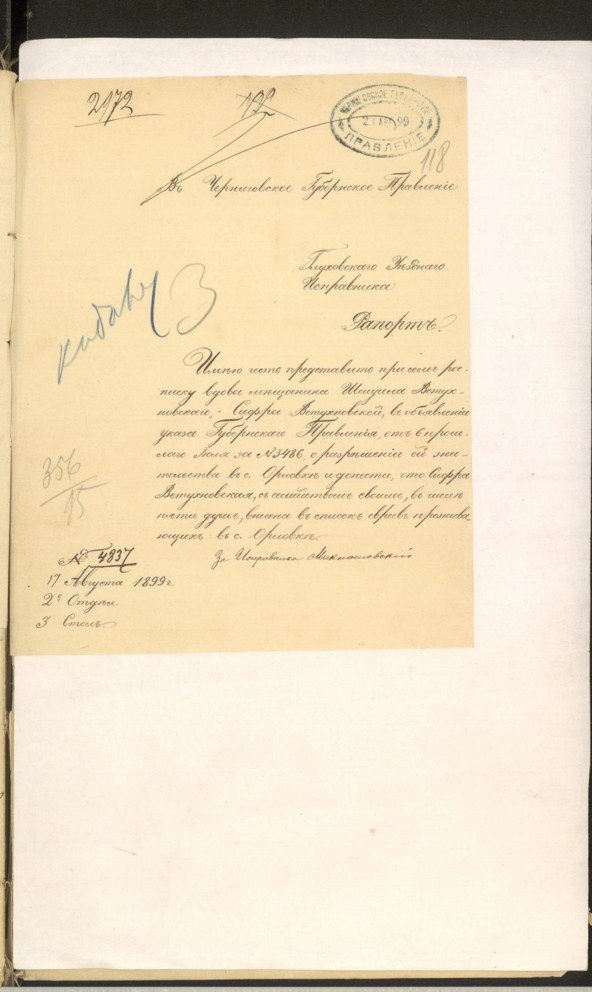 2172
118
ЧЕРНИГОВСКОЕ ГУБЕРНСКОЕ
99
ПРАВЛЕНІЕ
118
Въ Черниговское Губернское Правленіе
Глуховскаго Уѣзднаго
Исправника
Рапортъ.
3
Имѣю честь представить при семъ рос-
писку вдовы мѣщанина Шмуила Ветух-
новскаго, - Сифры Ветухновской, въ объявленіи
указа Губернскаго Правленія, отъ 6 прош-
лаго Іюля за №3486, о разрѣшеніи ей жи-
тельства въ с. Орловкѣ и донести, что Сифра
Ветухновская, съ семействомъ своимъ, въ числѣ
пяти душъ, внесена въ списокъ евреевъ прожива
ющихъ въ с. Орловкѣ.
За Исправника
356
15
№ 4837
17 Августа 1899 г.
2е Отдѣл.
3 Столъ